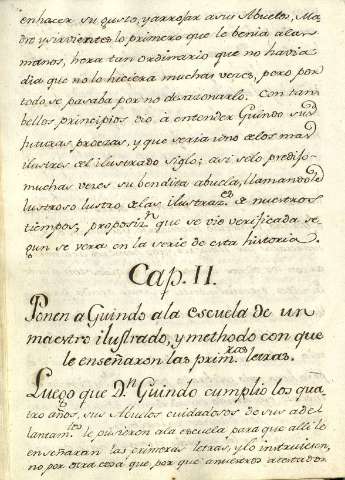 en hacer su gusto, y arrojar a sus Abuelos, Ma
dre y sirvientes lo primero que le benia a las
manos, hera tan ordinario que no havia
dia que no lo hiciera muchas veces, pero por
todo se pasaba por no desazonarlo. Con tan
bellos principios dio à entender Guindo sus
futuras proezas, y que seria uno de los mas
ilustres del ilustrado siglo; asi selo predijo
muchas veres su bendita abuela, llamandole
lustroso lustro de las ilustraz.es de nuestros
tiempos; proposiz.n que se vio verificada se
gun se vera en la serie de esta historia.
Cap. II.
Ponen a Guindo a la escuela de un
maestro ilustrado, y methodo con que
le enseñaron las prim.ras letras.
Luego que D.n Guindo cumplio los qua
tro años, sus Abuelos cuidadosos de su adel
lantam.to le pusieron a la escuela para que alli le
enseñaran las primeras letras, y lo instruiesen,
no por otra cosa que, por que